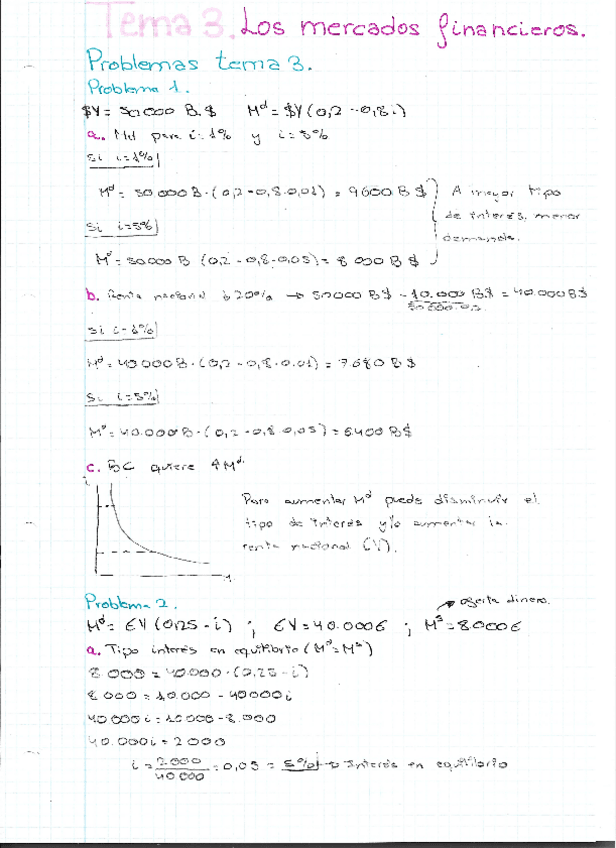 Tema 3. Los mercados financieros.
Problemas tema 3.
Problema 1.
$Y = 50000 B.$ Mᵈ = $Y(0,2 - 0,8i)
a. Md para i=1% y i=5%
Si i=1%
Mᵈ = 50000B·(0,2-0,8·0,01) = 9600B$
A mayor tipo
de interés, menor
demanda.
Si i=5%
Mᵈ = 50000B (0,2-0,8·0,05) = 8000B$
b. Renta nacional ↓20% → 50000B$ - 10.000B$ = 40.000B$
Si i=1%
Mᵈ = 40000B·(0,2-0,8·0.01) = 7680B$
Si i=5%
Mᵈ = 40.000B·(0,2-0,8·0,05) = 6400B$
c. BC quiere ↑Mᵈ
i
Para aumentar Mᵈ puede disminuir el
tipo de interés y/o aumentar la
renta nacional (Y).
M
Problema 2.
oferta dinero.
Mᵈ = €Y(0,25-i) ; €Y = 40.000€ ; Mˢ = 8000€
a. Tipo interés en equilibrio (Mᵈ=Mˢ)
8000 = 40.000·(0,25-i)
8.000 = 10.000 - 40000i
40000i = 10000 - 8.000
40.000i = 2000
i = 2.000/40000 = 0,05 = 5% → Interés en equilibrio